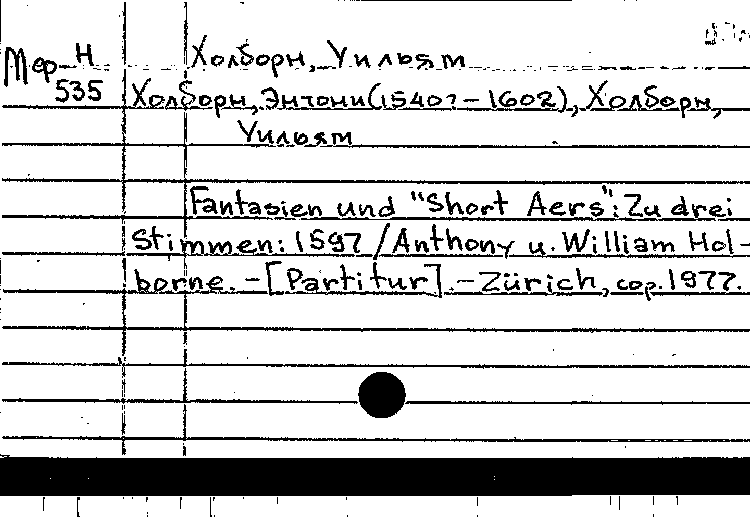 Мер H Холборн, Уильям
535 Холборн, Энтони (1540?-1602), Холборн,
Уильям
Fantasien und "Short Aers": Zu drei
Stimmen: 1597 / Anthony u. William Hol-
borne. - [Partitur]. - Zürich, cop. 1977.